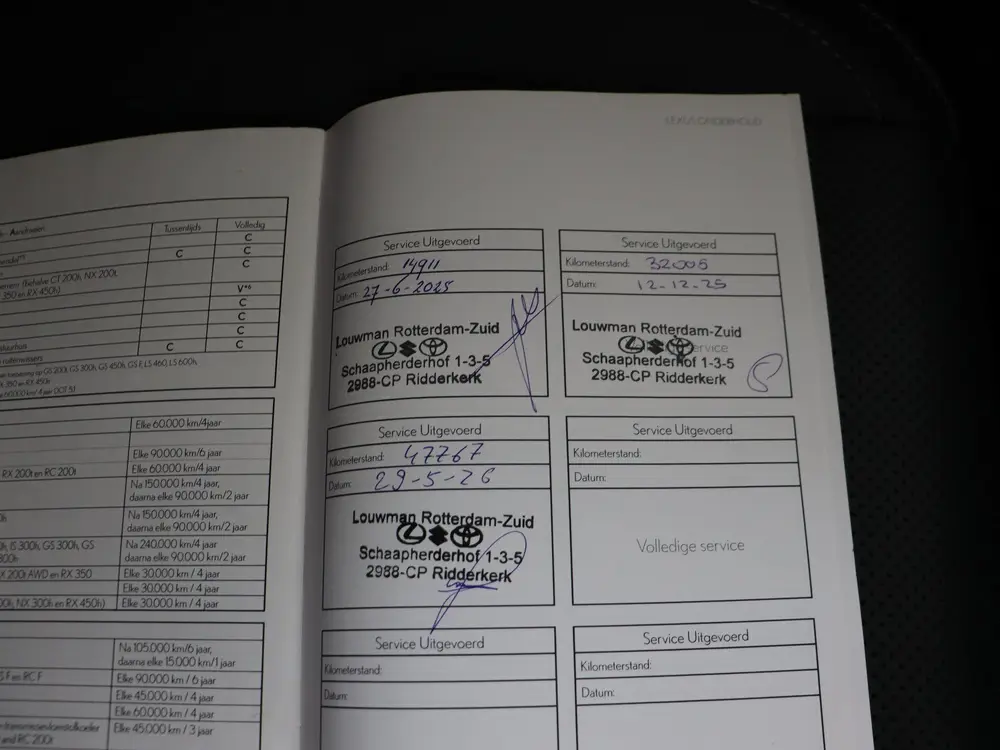 Tussentijds Volledig
C
C C
C
(behalve CT 200h, NX 200t,
350 en RX 450h) V*⁶
C
C
C
C C
Elke 60.000 km/4jaar
Elke 90.000 km/6 jaar
RX 200t en RC 200t Elke 60.000 km/4 jaar
Na 150.000 km/4 jaar,
daarna elke 90.000 km/2 jaar
Na 150.000 km/4 jaar,
daarna elke 90.000 km/2 jaar
IS 300h, GS 300h, GS Na 240.000 km/4 jaar
daarna elke 90.000 km/2 jaar
200t AWD en RX 350 Elke 30.000 km / 4 jaar
Elke 30.000 km / 4 jaar
NX 300h en RX 450h) Elke 30.000 km / 4 jaar
Na 105.000 km/6 jaar,
daarna elke 15.000 km/1 jaar
F en RC F Elke 90.000 km / 6 jaar
Elke 45.000 km / 4 jaar
Elke 60.000 km / 4 jaar
Elke 45.000 km / 3 jaar
and RC 200t
Service Uitgevoerd
Kilometerstand: 14911
Datum: 27-6-2025
Louwman Rotterdam-Zuid
Schaapherderhof 1-3-5
2988-CP Ridderkerk
Service Uitgevoerd
Kilometerstand: 32005
Datum: 12-12-25
Louwman Rotterdam-Zuid
service
Schaapherderhof 1-3-5
2988-CP Ridderkerk
Service Uitgevoerd
Kilometerstand: 47767
Datum: 29-5-26
Louwman Rotterdam-Zuid
Schaapherderhof 1-3-5
2988-CP Ridderkerk
Service Uitgevoerd
Kilometerstand:
Datum:
Volledige service
Service Uitgevoerd
Kilometerstand:
Datum:
Service Uitgevoerd
Kilometerstand:
Datum: